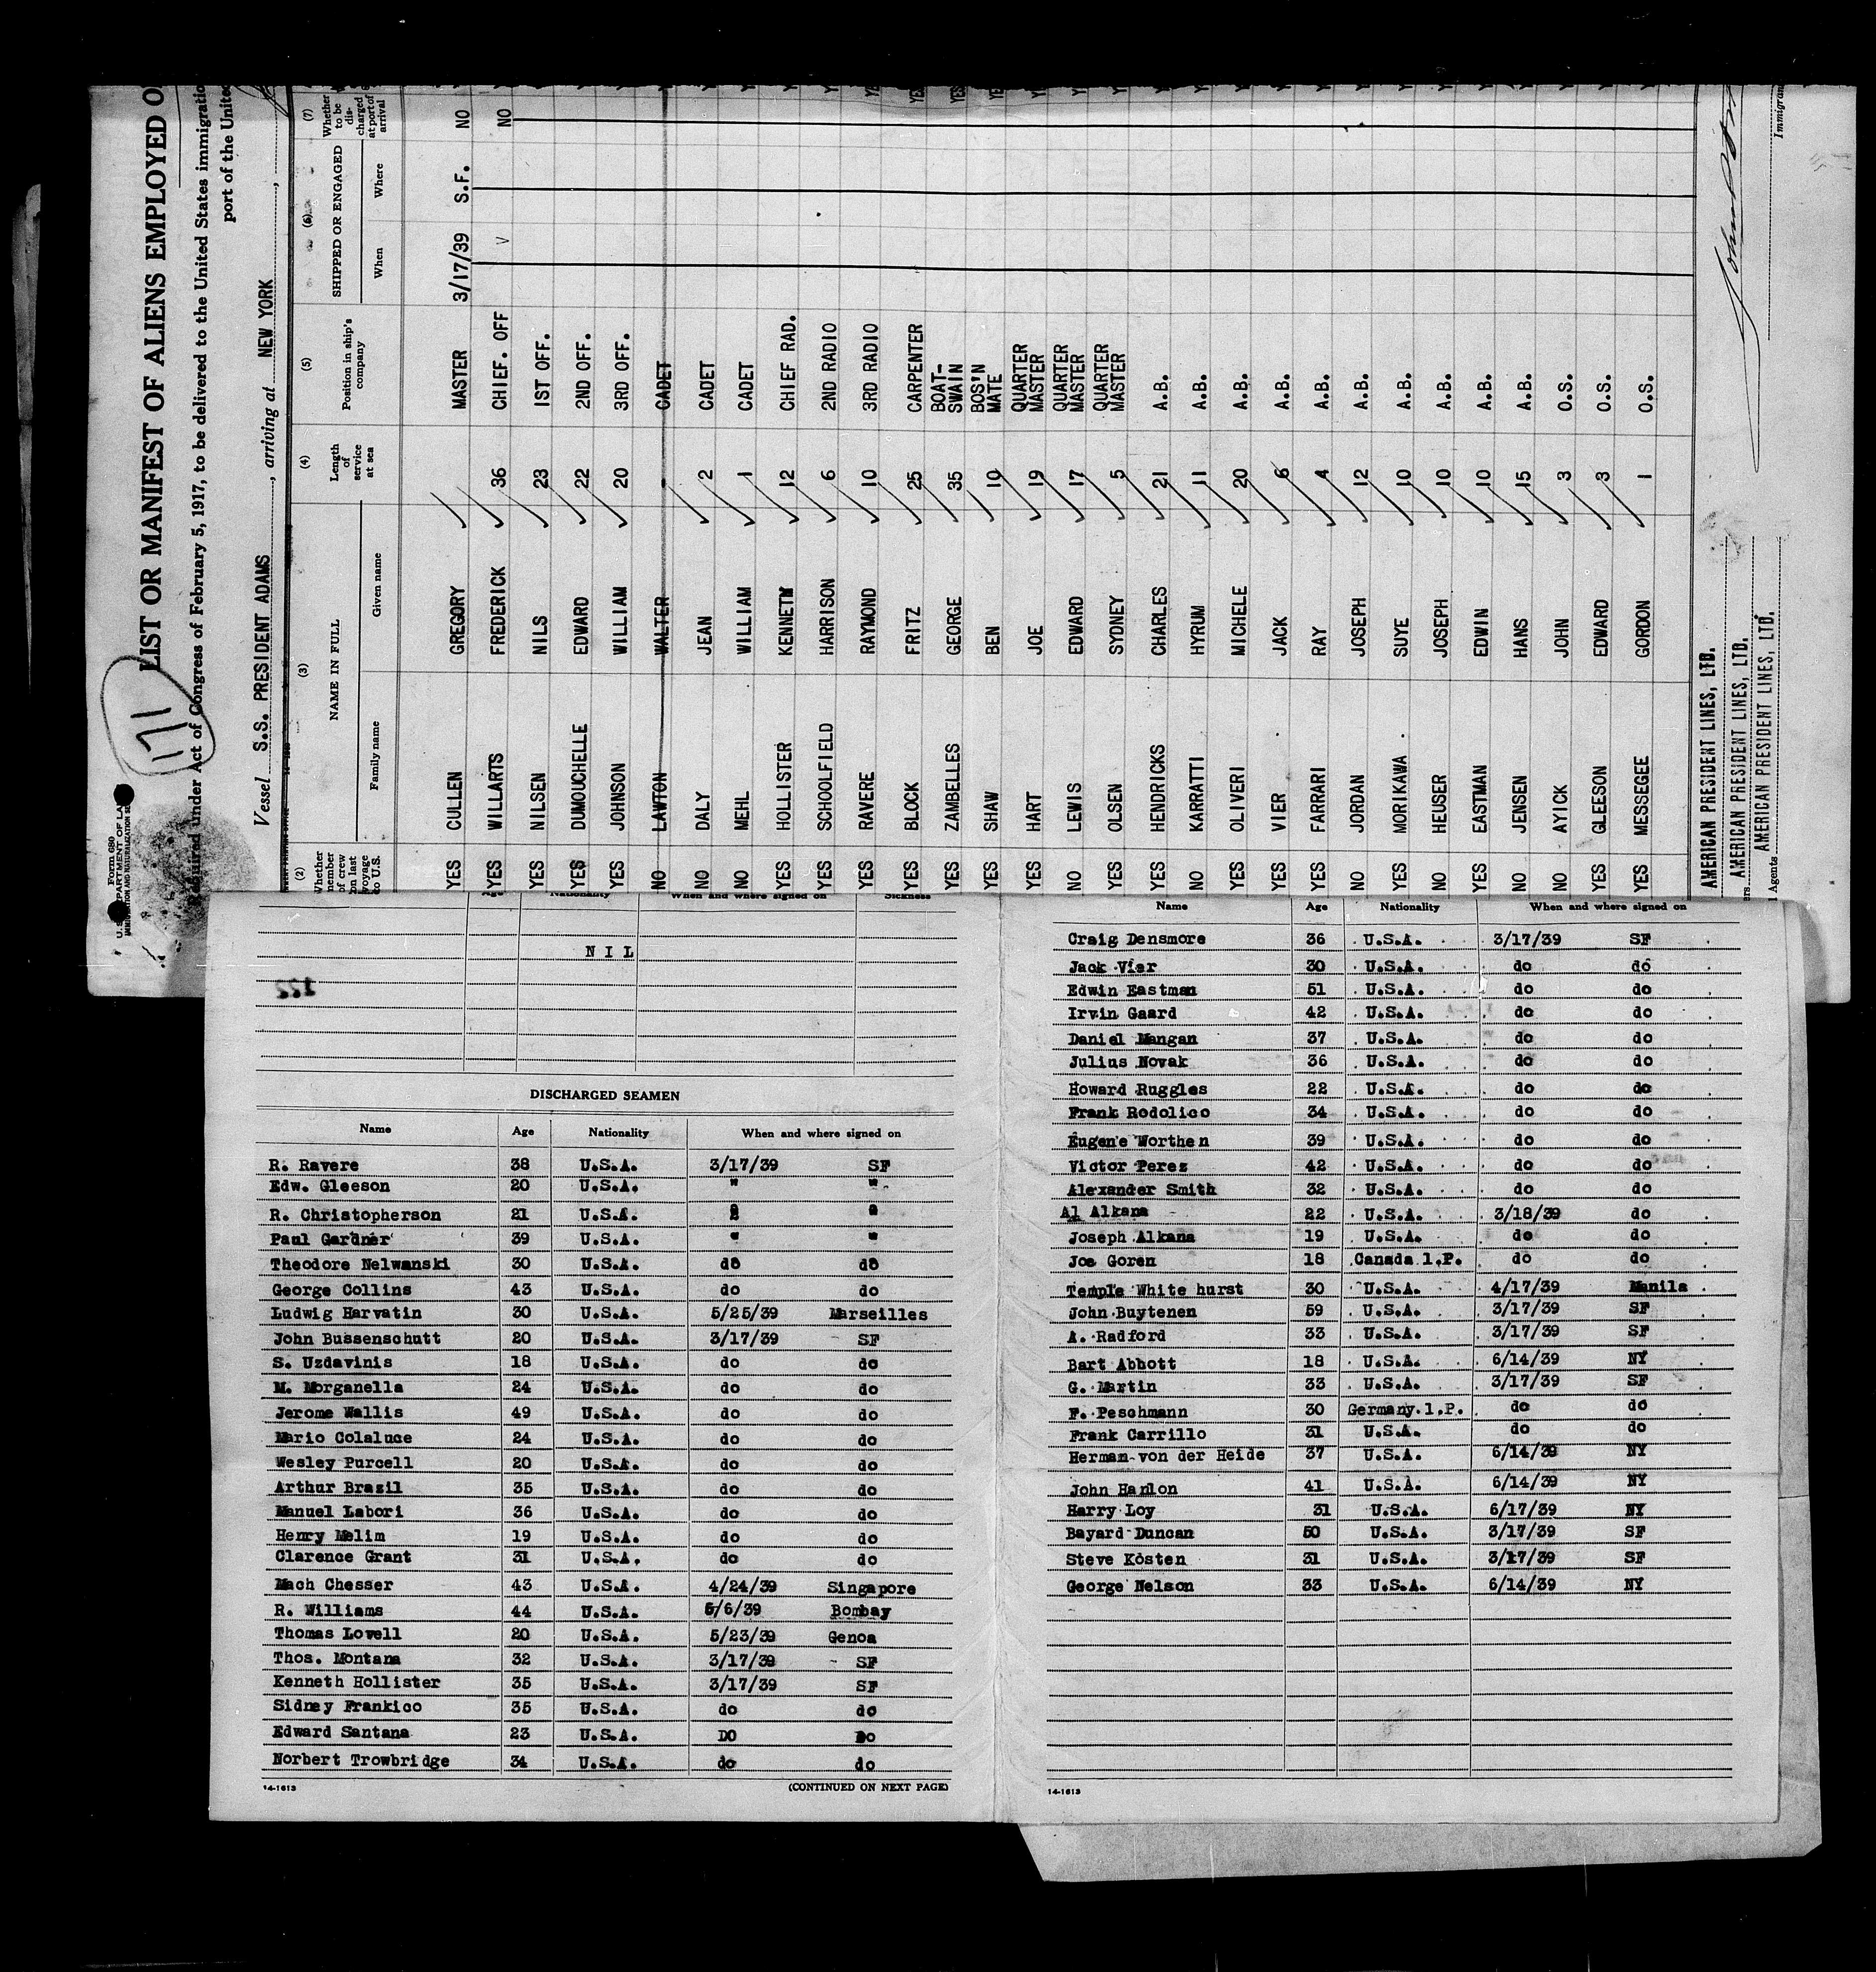 Form 680
U.S. DEPARTMENT OF LA
IMMIGRATION AND NATURALIZATION SE
171
LIST OR MANIFEST OF ALIENS EMPLOYED O
Required under Act of Congress of February 5, 1917, to be delivered to the United States immigratio
port of the United
Vessel S.S. PRESIDENT ADAMS, arriving at NEW YORK,
(2) (3) (4) (5) (6) (7)
Whether member of crew on last voyage to U.S. NAME IN FULL Length of service at sea Position in ship's company SHIPPED OR ENGAGED Whether to be discharged at port of arrival
Family name Given name When Where
YES CULLEN GREGORY MASTER 3/17/39 S.F. NO
YES WILLARTS FREDERICK 36 CHIEF. OFF V NO
YES NILSEN NILS 23 1ST OFF.
YES DUMOUCHELLE EDWARD 22 2ND OFF.
YES JOHNSON WILLIAM 20 3RD OFF.
NO LAWTON WALTER - CADET
NO DALY JEAN 2 CADET
NO MEHL WILLIAM 1 CADET
YES HOLLISTER KENNETH 12 CHIEF RAD.
YES SCHOOLFIELD HARRISON 6 2ND RADIO
YES RAVERE RAYMOND 10 3RD RADIO
YES BLOCK FRITZ 25 CARPENTER
YES ZAMBELLES GEORGE 35 BOAT-SWAIN
YES SHAW BEN 10 BOS'N MATE
YES HART JOE 19 QUARTER MASTER
NO LEWIS EDWARD 17 QUARTER MASTER
YES OLSEN SYDNEY 5 QUARTER MASTER
YES HENDRICKS CHARLES 21 A.B.
NO KARRATTI HYRUM 11 A.B.
YES OLIVERI MICHELE 20 A.B.
YES VIER JACK 6 A.B.
YES FARRARI RAY 4 A.B.
NO JORDAN JOSEPH 12 A.B.
YES MORIKAWA SUYE 10 A.B.
NO HEUSER JOSEPH 10 A.B.
YES EASTMAN EDWIN 10 A.B.
NO JENSEN HANS 15 A.B.
NO AYICK JOHN 3 O.S.
YES GLEESON EDWARD 3 O.S.
YES MESSEGEE GORDON 1 O.S.
AMERICAN PRESIDENT LINES, LTD.
AMERICAN PRESIDENT LINES, LTD.
Agents AMERICAN PRESIDENT LINES, LTD.
Immigran
Age Nationality When and where signed on Sickness
NIL
122
DISCHARGED SEAMEN
Name Age Nationality When and where signed on
R. Ravere 38 U.S.A. 3/17/39 SF
Edw. Gleeson 20 U.S.A. " "
R. Christopherson 21 U.S.A.
Paul Gardner 39 U.S.A. " "
Theodore Nelwanski 30 U.S.A. do do
George Collins 43 U.S.A. do do
Ludwig Harvatin 30 U.S.A. 5/25/39 Marseilles
John Bussenschutt 20 U.S.A. 3/17/39 SF
S. Uzdavinis 18 U.S.A. do do
M. Morganella 24 U.S.A. do do
Jerome Wallis 49 U.S.A. do do
Mario Colaluce 24 U.S.A. do do
Wesley Purcell 20 U.S.A. do do
Arthur Brazil 35 U.S.A. do do
Manuel Labori 36 U.S.A. do do
Henry Melim 19 U.S.A. do do
Clarence Grant 31 U.S.A. do do
Mach Chesser 43 U.S.A. 4/24/39 Singapore
R. Williams 44 U.S.A. 5/6/39 Bombay
Thomas Lovell 20 U.S.A. 5/23/39 Genoa
Thos. Montana 32 U.S.A. 3/17/39 SF
Kenneth Hollister 35 U.S.A. 3/17/39 SF
Sidney Frankico 35 U.S.A. do do
Edward Santana 23 U.S.A. DO DO
Norbert Trowbridge 34 U.S.A. do do
14-1613 (CONTINUED ON NEXT PAGE)
Name Age Nationality When and where signed on
Craig Densmore 36 U.S.A. 3/17/39 SF
Jack Vier 30 U.S.A. do do
Edwin Eastman 51 U.S.A. do do
Irvin Gaard 42 U.S.A. do do
Daniel Mangan 37 U.S.A. do do
Julius Novak 36 U.S.A. do do
Howard Ruggles 22 U.S.A. do do
Frank Rodolico 34 U.S.A. do do
Eugene Worthen 39 U.S.A. do do
Victor Perez 42 U.S.A. do do
Alexander Smith 32 U.S.A. do do
Al Alkana 22 U.S.A. 3/18/39 do
Joseph Alkana 19 U.S.A. do do
Joe Goren 18 Canada 1.P. do do
Temple White hurst 30 U.S.A. 4/17/39 Manila
John Buytenen 59 U.S.A. 3/17/39 SF
A. Radford 33 U.S.A. 3/17/39 SF
Bart Abbott 18 U.S.A. 6/14/39 NY
G. Martin 33 U.S.A. 3/17/39 SF
F. Peschmann 30 Germany.1.P. do do
Frank Carrillo 31 U.S.A. do do
Herman von der Heide 37 U.S.A. 6/14/39 NY
John Hanlon 41 U.S.A. 6/14/39 NY
Harry Loy 31 U.S.A. 6/17/39 NY
Bayard Duncan 50 U.S.A. 3/17/39 SF
Steve Kosten 31 U.S.A. 3/17/39 SF
George Nelson 33 U.S.A. 6/14/39 NY
14-1613